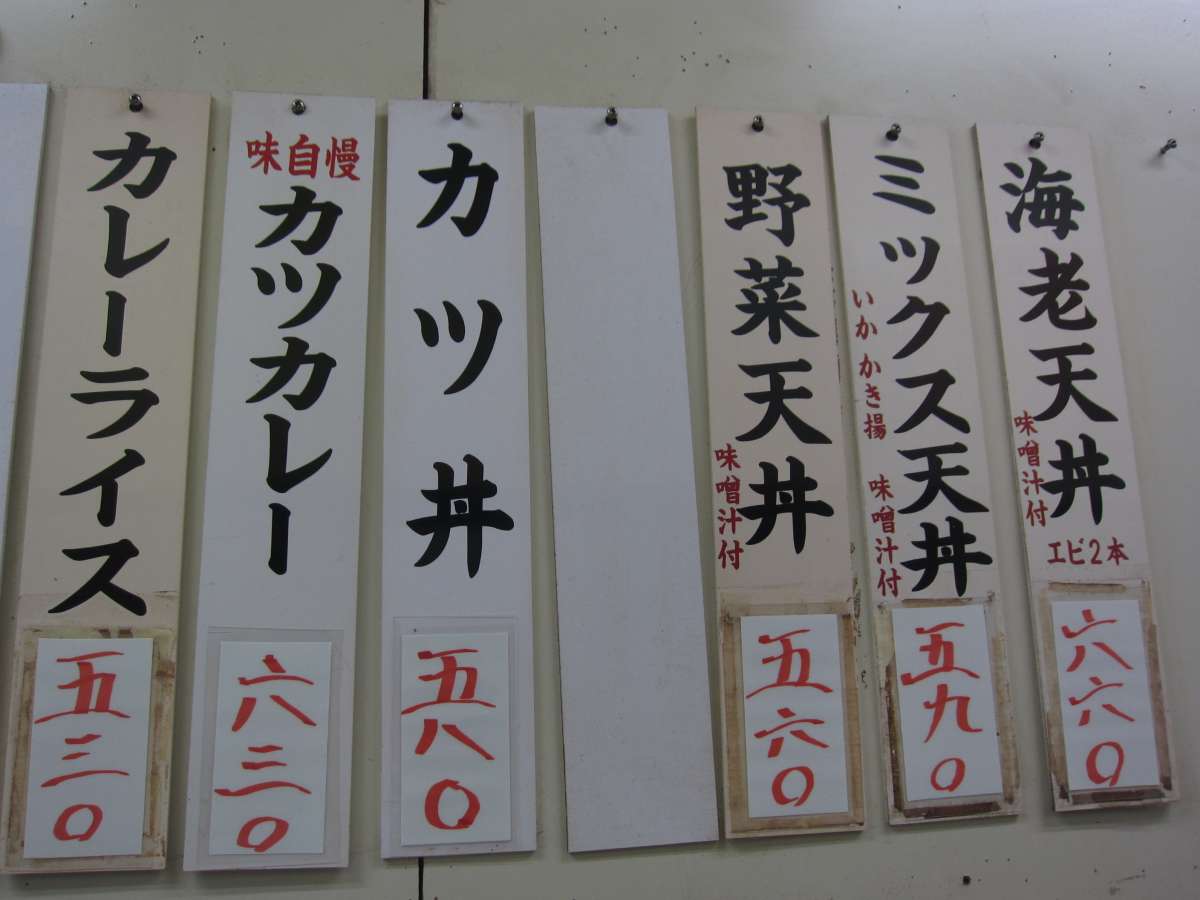 海老天丼
味噌汁付
エビ2本
六六0
ミックス天丼
いか かき揚 味噌汁付
五九0
野菜天丼
味噌汁付
五六0
カツ丼
五八0
味自慢
カツカレー
六三0
カレーライス
五三0